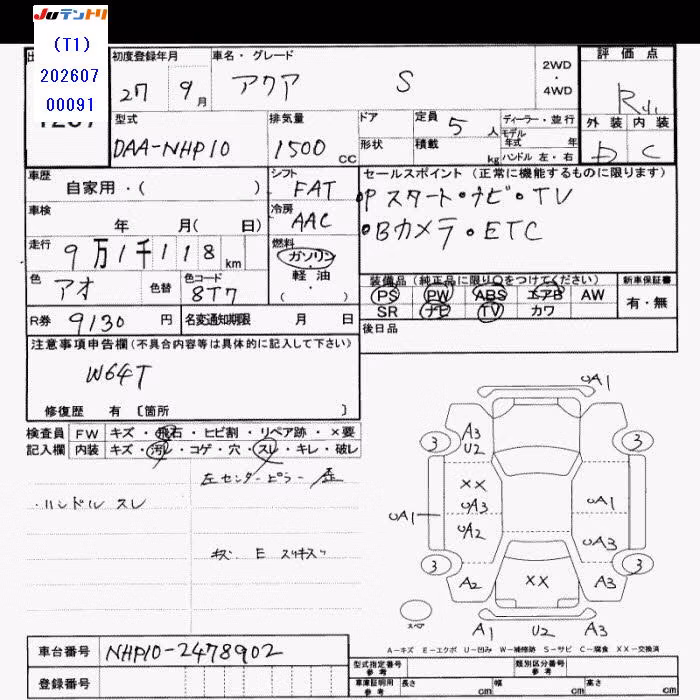 Juテントリ
(T1)
202607
00091
初度登録年月 車名・グレード 2WD・4WD 評価点
27 9月 アクア S R
型式 排気量 ドア 定員 5人 ディーラー・並行 外装 内装
DAA-NHP10 1500 CC 形状 積載 kg モデル年式 年 D C
ハンドル 左・右
車歴 シフト セールスポイント(正常に機能するものに限ります)
自家用・( ) FAT ・Pスタート・ナビ・TV
車検 冷房 ・Bカメラ・ETC
年 月( 日) AAC
走行 9万1千118km 燃料
ガソリン・軽油・( )
色 アオ 色替 色コード 8T7
装備品(純正品に限り○をつけてください) 新車保証書
PS PW ABS エアB AW 有・無
SR ナビ TV カワ
R券 9130円 名変通知期限 月 日 後日品
注意事項申告欄(不具合内容等は具体的に記入して下さい)
W64T
修復歴 有 [箇所 ]
検査員 FW キズ・飛石・ヒビ割・リペア跡・×要
記入欄 内装 キズ・汚レ・コゲ・穴・スレ・キレ・破レ
左センターピラー 歪
・ハンドルスレ
キズ E スリキズ
UA1
3 A3 U2 3
XX
UA3 UA1
UA1 UA2 UA3
3 3
A2 XX A3
スペア A1 U2 A3
A-キズ E-エクボ U-凹み W-補修跡 S-サビ C-腐食 XX-交換済
車台番号 NHP10-2478902
登録番号
型式指定番号 参考 類別区分番号 参考
車庫証明用 参考 長さ cm 幅 cm 高さ cm